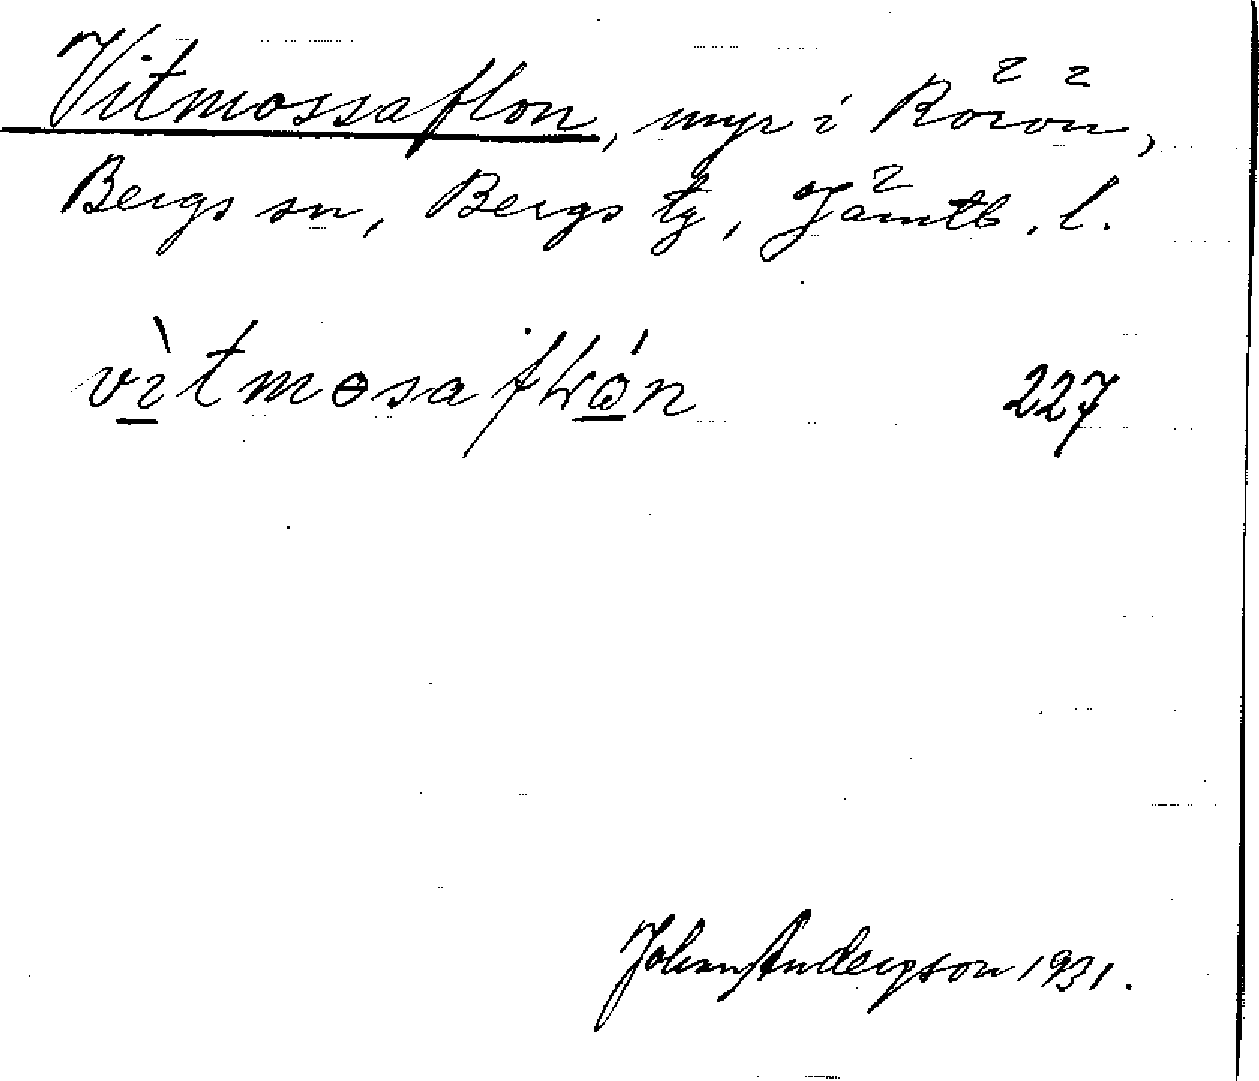 Vitmossaflon, myr i Rörön,
Bergs sn, Bergs tg, Jämtl. l.
227
Johan Andersson 1931.